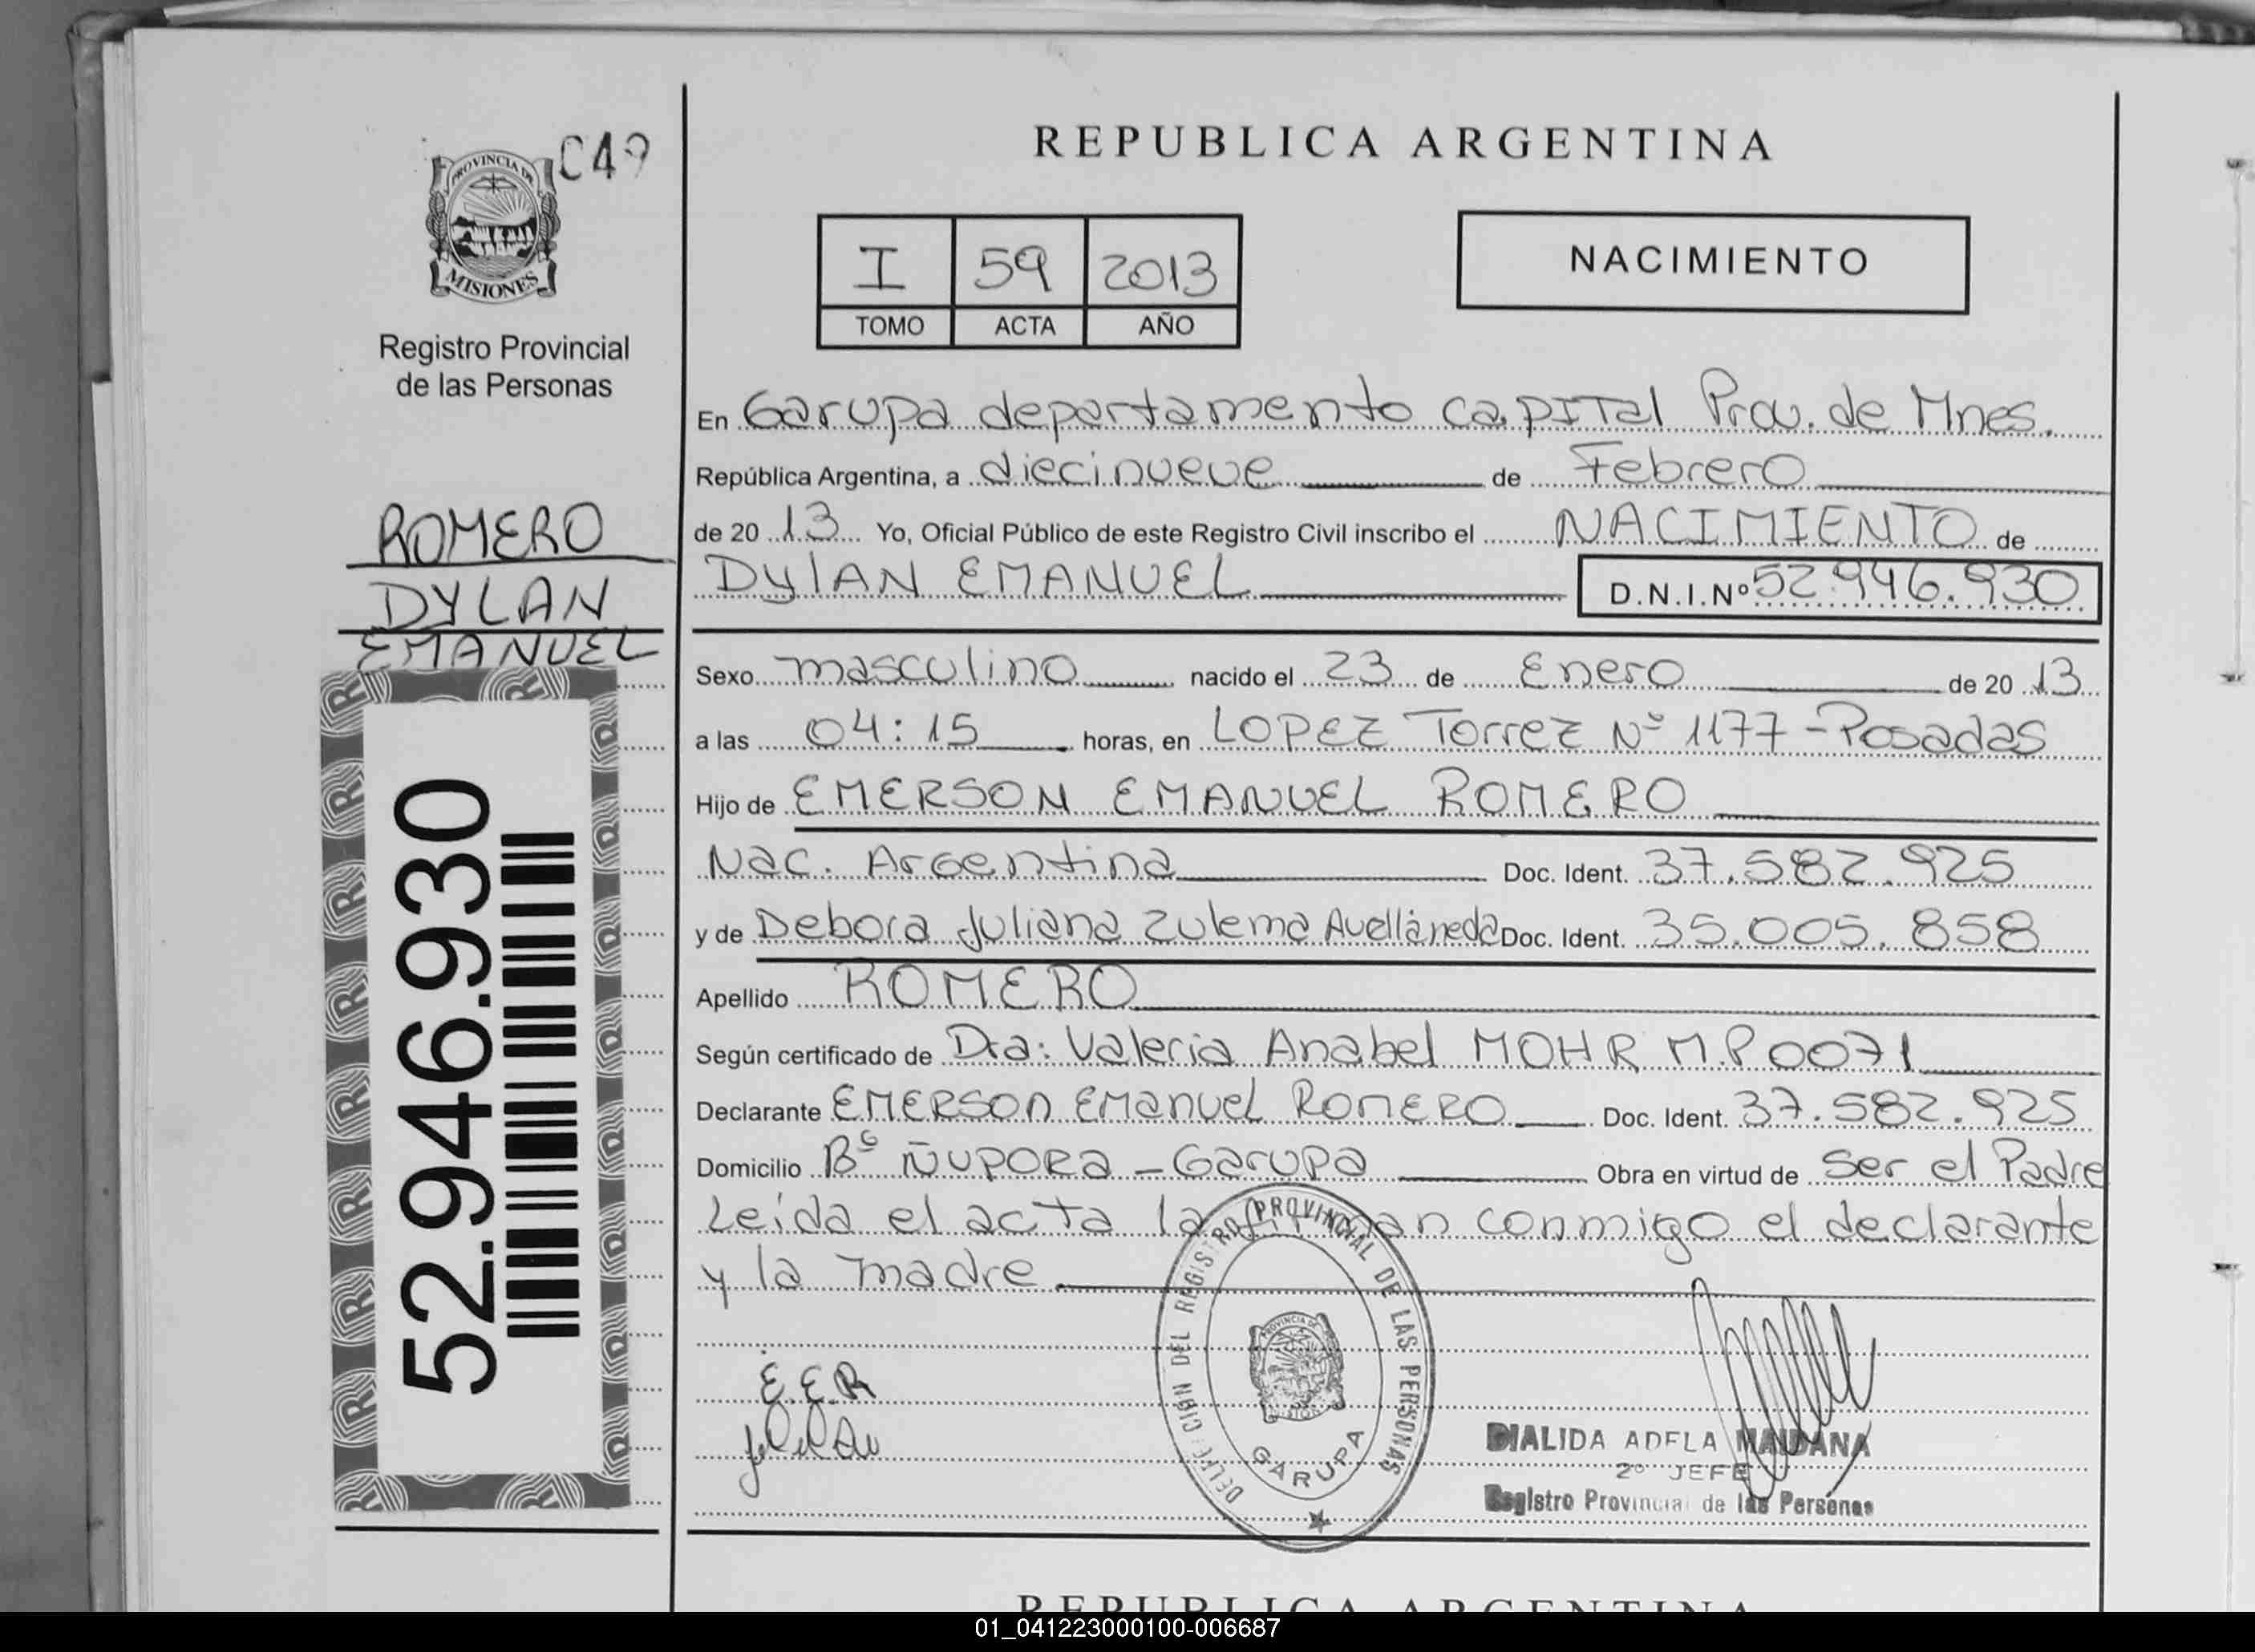 C49
PROVINCIA DE
MISIONES
Registro Provincial
de las Personas
ROMERO
DYLAN
EMANUEL
52.946.930
REPUBLICA ARGENTINA
I 59 2013
TOMO ACTA AÑO
NACIMIENTO
En Garupa departamento capital Prov. de Mnes.
República Argentina, a diecinueve de Febrero
de 20 13 Yo, Oficial Público de este Registro Civil inscribo el NACIMIENTO de
DylAN EMANUEL D.N.I.Nº 52.946.930
Sexo masculino nacido el 23 de Enero de 20 13
a las 04:15 horas, en LOPEZ Torrez Nº 1177 - Posadas
Hijo de EMERSON EMANUEL ROMERO
Nac. Argentina Doc. Ident. 37.582.925
y de Debora Juliana Zulema Avellaneda Doc. Ident. 35.005.858
Apellido ROMERO
Según certificado de Dra: Valeria Anabel MOHR M.P 0071
Declarante EMERSON EMANUEL ROMERO Doc. Ident. 37.582.925
Domicilio Bº ÑUPORA - Garupa Obra en virtud de ser el Padre
Leída el acta la firman conmigo el declarante
y la madre
E.E.R
DELEGACION DEL REGISTRO PROVINCIAL DE LAS PERSONAS
GARUPA
DIALIDA ADELA MAIDANA
2º JEFE
Registro Provincial de las Personas
REPUBLICA ARGENTINA
01_041223000100-006687